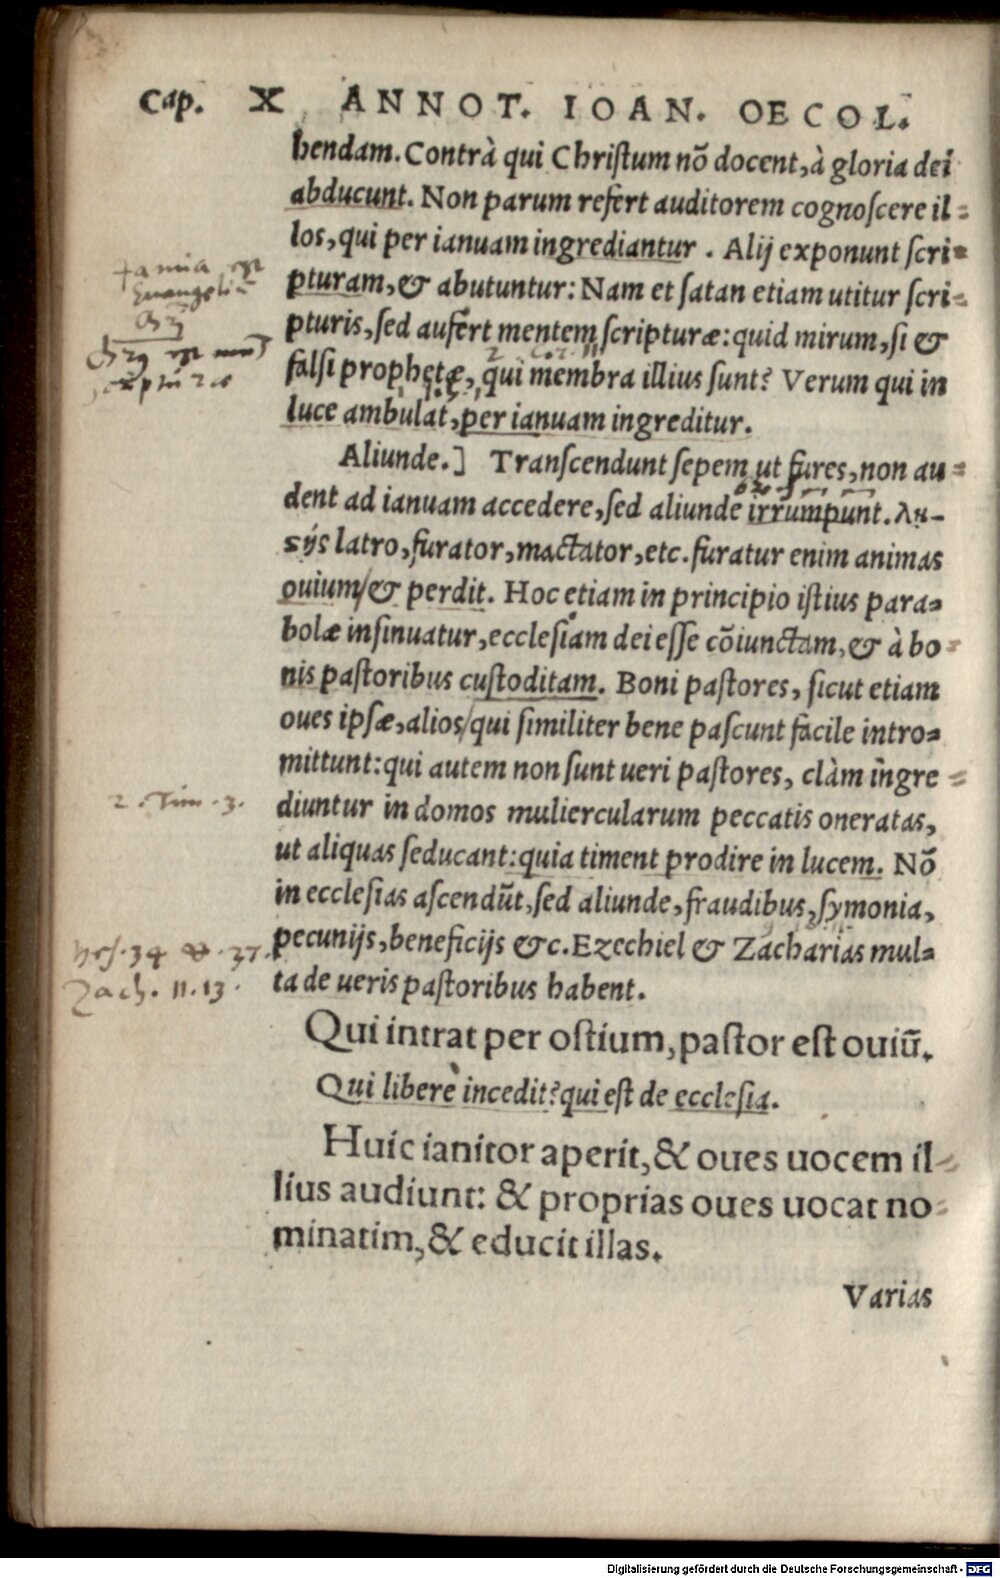 Cap. X ANNOT. IOAN. OECOL.
hendam. Contrà qui Christum nõ docent, à gloria dei
abducunt. Non parum refert auditorem cognoscere il-
los, qui per ianuam ingrediantur. Alij exponunt scri-
pturam, & abutuntur: Nam et satan etiam utitur scri-
pturis, sed aufert mentem scripturæ: quid mirum, si &
falsi prophetæ, qui membra illius sunt? Verum qui in
luce ambulat, per ianuam ingreditur.
Aliunde.] Transcendunt sepem ut fures, non au-
dent ad ianuam accedere, sed aliunde irrumpunt. λη-
ςὴς latro, furator, mactator, etc. furatur enim animas
ouium/ & perdit. Hoc etiam in principio istius para-
bolæ insinuatur, ecclesiam dei esse cõiunctam, & à bo-
nis pastoribus custoditam. Boni pastores, sicut etiam
oues ipsæ, alios/ qui similiter bene pascunt facile intro-
mittunt: qui autem non sunt ueri pastores, clàm ingre-
diuntur in domos muliercularum peccatis oneratas,
2. Tim. 3.
ut aliquas seducant: quia timent prodire in lucem. Nõ
in ecclesias ascendũt, sed aliunde, fraudibus, symonia,
pecunijs, beneficijs &c. Ezechiel & Zacharias mul-
34 & 37.
ta de ueris pastoribus habent.
Zach. 11. 13.
Qui intrat per ostium, pastor est ouiũ.
Qui liberè incedit? qui est de ecclesia.
Huic ianitor aperit, & oues uocem il-
lius audiunt: & proprias oues uocat no-
minatim, & educit illas.
Varias
Digitalisierung gefördert durch die Deutsche Forschungsgemeinschaft - DFG